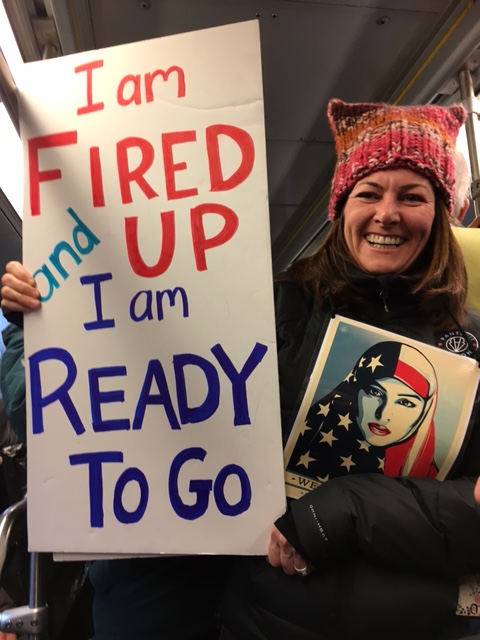 I am
FIRED
and UP
I am
READY
To Go
WE